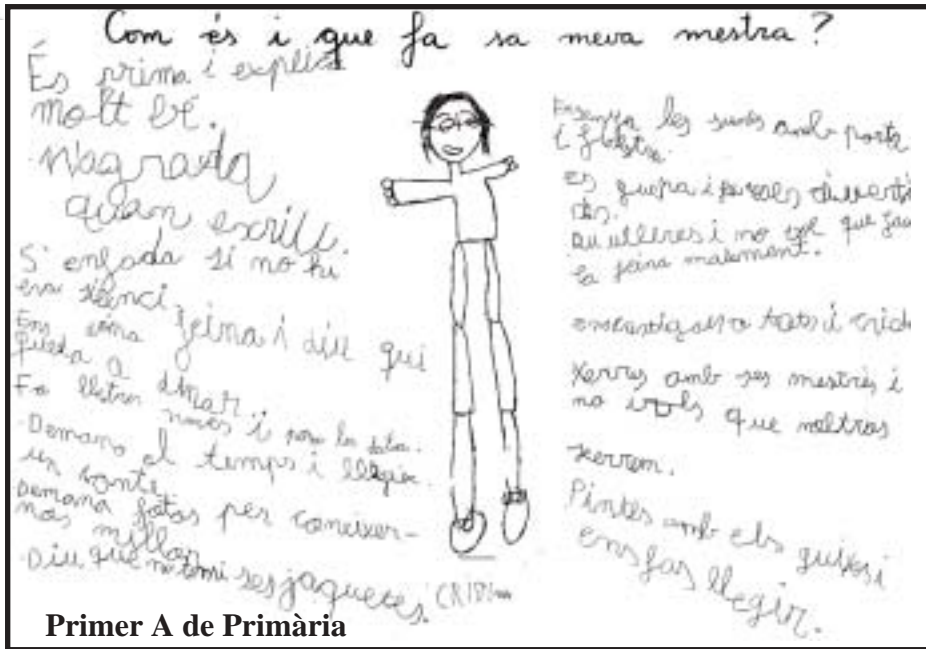 Com és i que fa sa meva mestra?
És prima i explica
molt bé.
M'agrada
quan escriu.
S'enfada si no hi
ha silenci
Ens feina i diu qui
queda a dinar.
Fa lletres noves i
-Demana el temps i llegia
un conte
Demana fotos per conèixer-
nos millor
-Diu que no temi ses jaquetes.
CRIDI
Ensenya les sumes amb porta
i finestra.
Es guapa i
Du ulleres i no vol que fau
la feina malament.
a tots i crida
Xerres amb ses mestres i
no vols que noltros
xerrem.
Pintes amb els guixos i
ens fas llegir.
Primer A de Primària